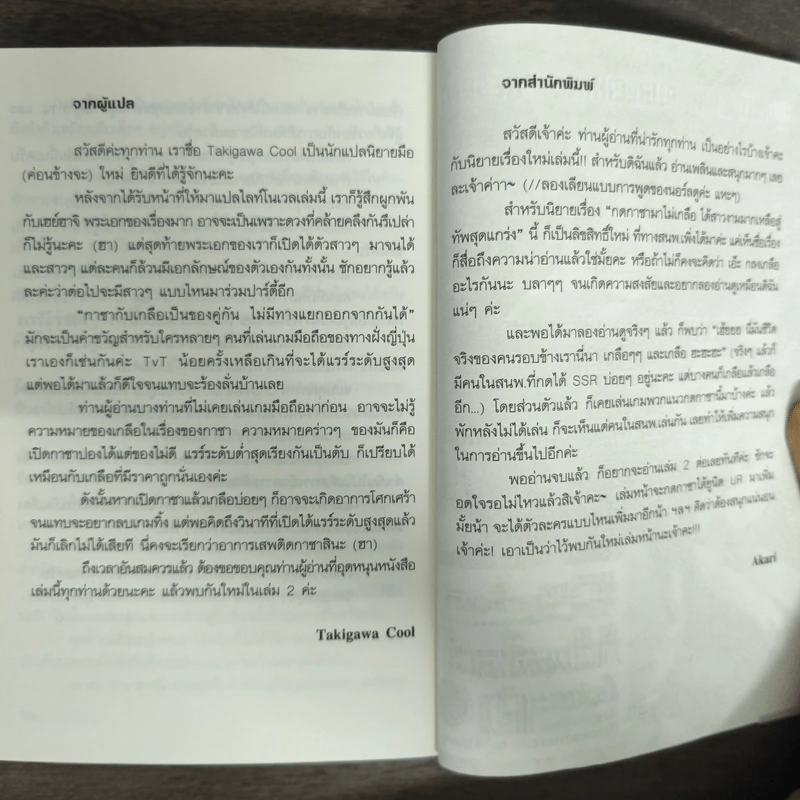 จากผู้แปล
สวัสดีค่ะทุกท่าน เราชื่อ Takigawa Cool เป็นนักแปลนิยายมือ
(ค่อนข้างจะ) ใหม่ ยินดีที่ได้รู้จักนะคะ
หลังจากได้รับหน้าที่ให้มาแปลไลท์โนเวลเล่มนี้ เราก็รู้สึกผูกพัน
กับเฮย์ฮาจิ พระเอกของเรื่องมาก อาจจะเป็นเพราะดวงที่คล้ายคลึงกันรึเปล่า
ก็ไม่รู้นะคะ (ฮา) แต่สุดท้ายพระเอกของเราก็เปิดได้ตัวสาวๆ มาจนได้
และสาวๆ แต่ละคนก็ล้วนมีเอกลักษณ์ของตัวเองกันทั้งนั้น ชักอยากรู้แล้ว
ละค่ะว่าต่อไปจะมีสาวๆ แบบไหนมาร่วมปาร์ตี้อีก
“กาชากับเกลือเป็นของคู่กัน ไม่มีทางแยกออกจากกันได้”
มักจะเป็นคำขวัญสำหรับใครหลายๆ คนที่เล่นเกมมือถือของทางฝั่งญี่ปุ่น
เราเองก็เช่นกันค่ะ TvT น้อยครั้งเหลือเกินที่จะได้แรร์ระดับสูงสุด
แต่พอได้มาแล้วก็ดีใจจนแทบจะร้องลั่นบ้านเลย
ท่านผู้อ่านบางท่านที่ไม่เคยเล่นเกมมือถือมาก่อน อาจจะไม่รู้
ความหมายของเกลือในเรื่องของกาชา ความหมายคร่าวๆ ของมันก็คือ
เปิดกาชาปองได้แต่ของไม่ดี แรร์ระดับต่ำสุดเรียงกันเป็นตับ ก็เปรียบได้
เหมือนกับเกลือที่มีราคาถูกนั่นเองค่ะ
ดังนั้นหากเปิดกาชาแล้วเกลือบ่อยๆ ก็อาจจะเกิดอาการโศกเศร้า
จนแทบจะอยากลบเกมทิ้ง แต่พอคิดถึงวินาทีที่เปิดได้แรร์ระดับสูงสุดแล้ว
มันก็เลิกไม่ได้เสียที นี่คงจะเรียกว่าอาการเสพติดกาชาสินะ (ฮา)
ถึงเวลาอันสมควรแล้ว ต้องขอขอบคุณท่านผู้อ่านที่อุดหนุนหนังสือ
เล่มนี้ทุกท่านด้วยนะคะ แล้วพบกันใหม่ในเล่ม 2 ค่ะ
Takigawa Cool
จากสำนักพิมพ์
สวัสดีเจ้าค่ะ ท่านผู้อ่านที่น่ารักทุกท่าน เป็นอย่างไรบ้างเจ้าคะ
กับนิยายเรื่องใหม่เล่มนี้!! สำหรับดิฉันแล้ว อ่านเพลินและสนุกมากๆ เลย
ละเจ้าค่าา~ (//ลองเลียนแบบการพูดของนอร์ลดูค่ะ แหะๆ)
สำหรับนิยายเรื่อง “กดกาชามาไม่เกลือ ได้สาวงามมากเหลือสู่
ทัพสุดแกร่ง” นี้ ก็เป็นลิขสิทธิ์ใหม่ ที่ทางสนพ.เพิ่งได้มาค่ะ แค่เห็นชื่อเรื่อง
ก็สื่อถึงความน่าอ่านแล้วใช่มั้ยคะ หรือถ้าไม่ก็คงจะคิดว่า เอ๊ะ กลงเกลือ
อะไรกันนะ บลาๆๆ จนเกิดความสงสัยและอยากลองอ่านดูเหมือนดิฉัน
แน่ๆ ค่ะ
และพอได้มาลองอ่านดูจริงๆ แล้ว ก็พบว่า “เฮ้ยยย นี่มันชีวิต
จริงของคนรอบข้างเรานี่นา เกลือๆๆ และเกลือ ฮะฮะฮะ” (จริงๆ แล้วก็
มีคนในสนพ.ที่กดได้ SSR บ่อยๆ อยู่นะคะ แต่บางคนก็เกลือแล้วเกลือ
อีก...) โดยส่วนตัวแล้ว ก็เคยเล่นเกมพวกแนวกดกาชานี้มาบ้างค่ะ แล้ว
พักหลังไม่ได้เล่น ก็จะเห็นแต่คนในสนพ.เล่นกัน เลยทำให้เพิ่มความสนุก
ในการอ่านขึ้นไปอีกค่ะ
พออ่านจบแล้ว ก็อยากจะอ่านเล่ม 2 ต่อเลยทันทีค่ะ ชักจะ
อดใจรอไม่ไหวแล้วสิเจ้าคะ~ เล่มหน้าจะกดกาชาได้ยูนิต UR มาเพิ่ม
มั้ยน้า จะได้ตัวละครแบบไหนเพิ่มมาอีกน้า ฯลฯ คิดว่าต้องสนุกแน่นอน
เจ้าค่ะ! เอาเป็นว่าไว้พบกันใหม่เล่มหน้านะเจ้าคะ!!!
Akari